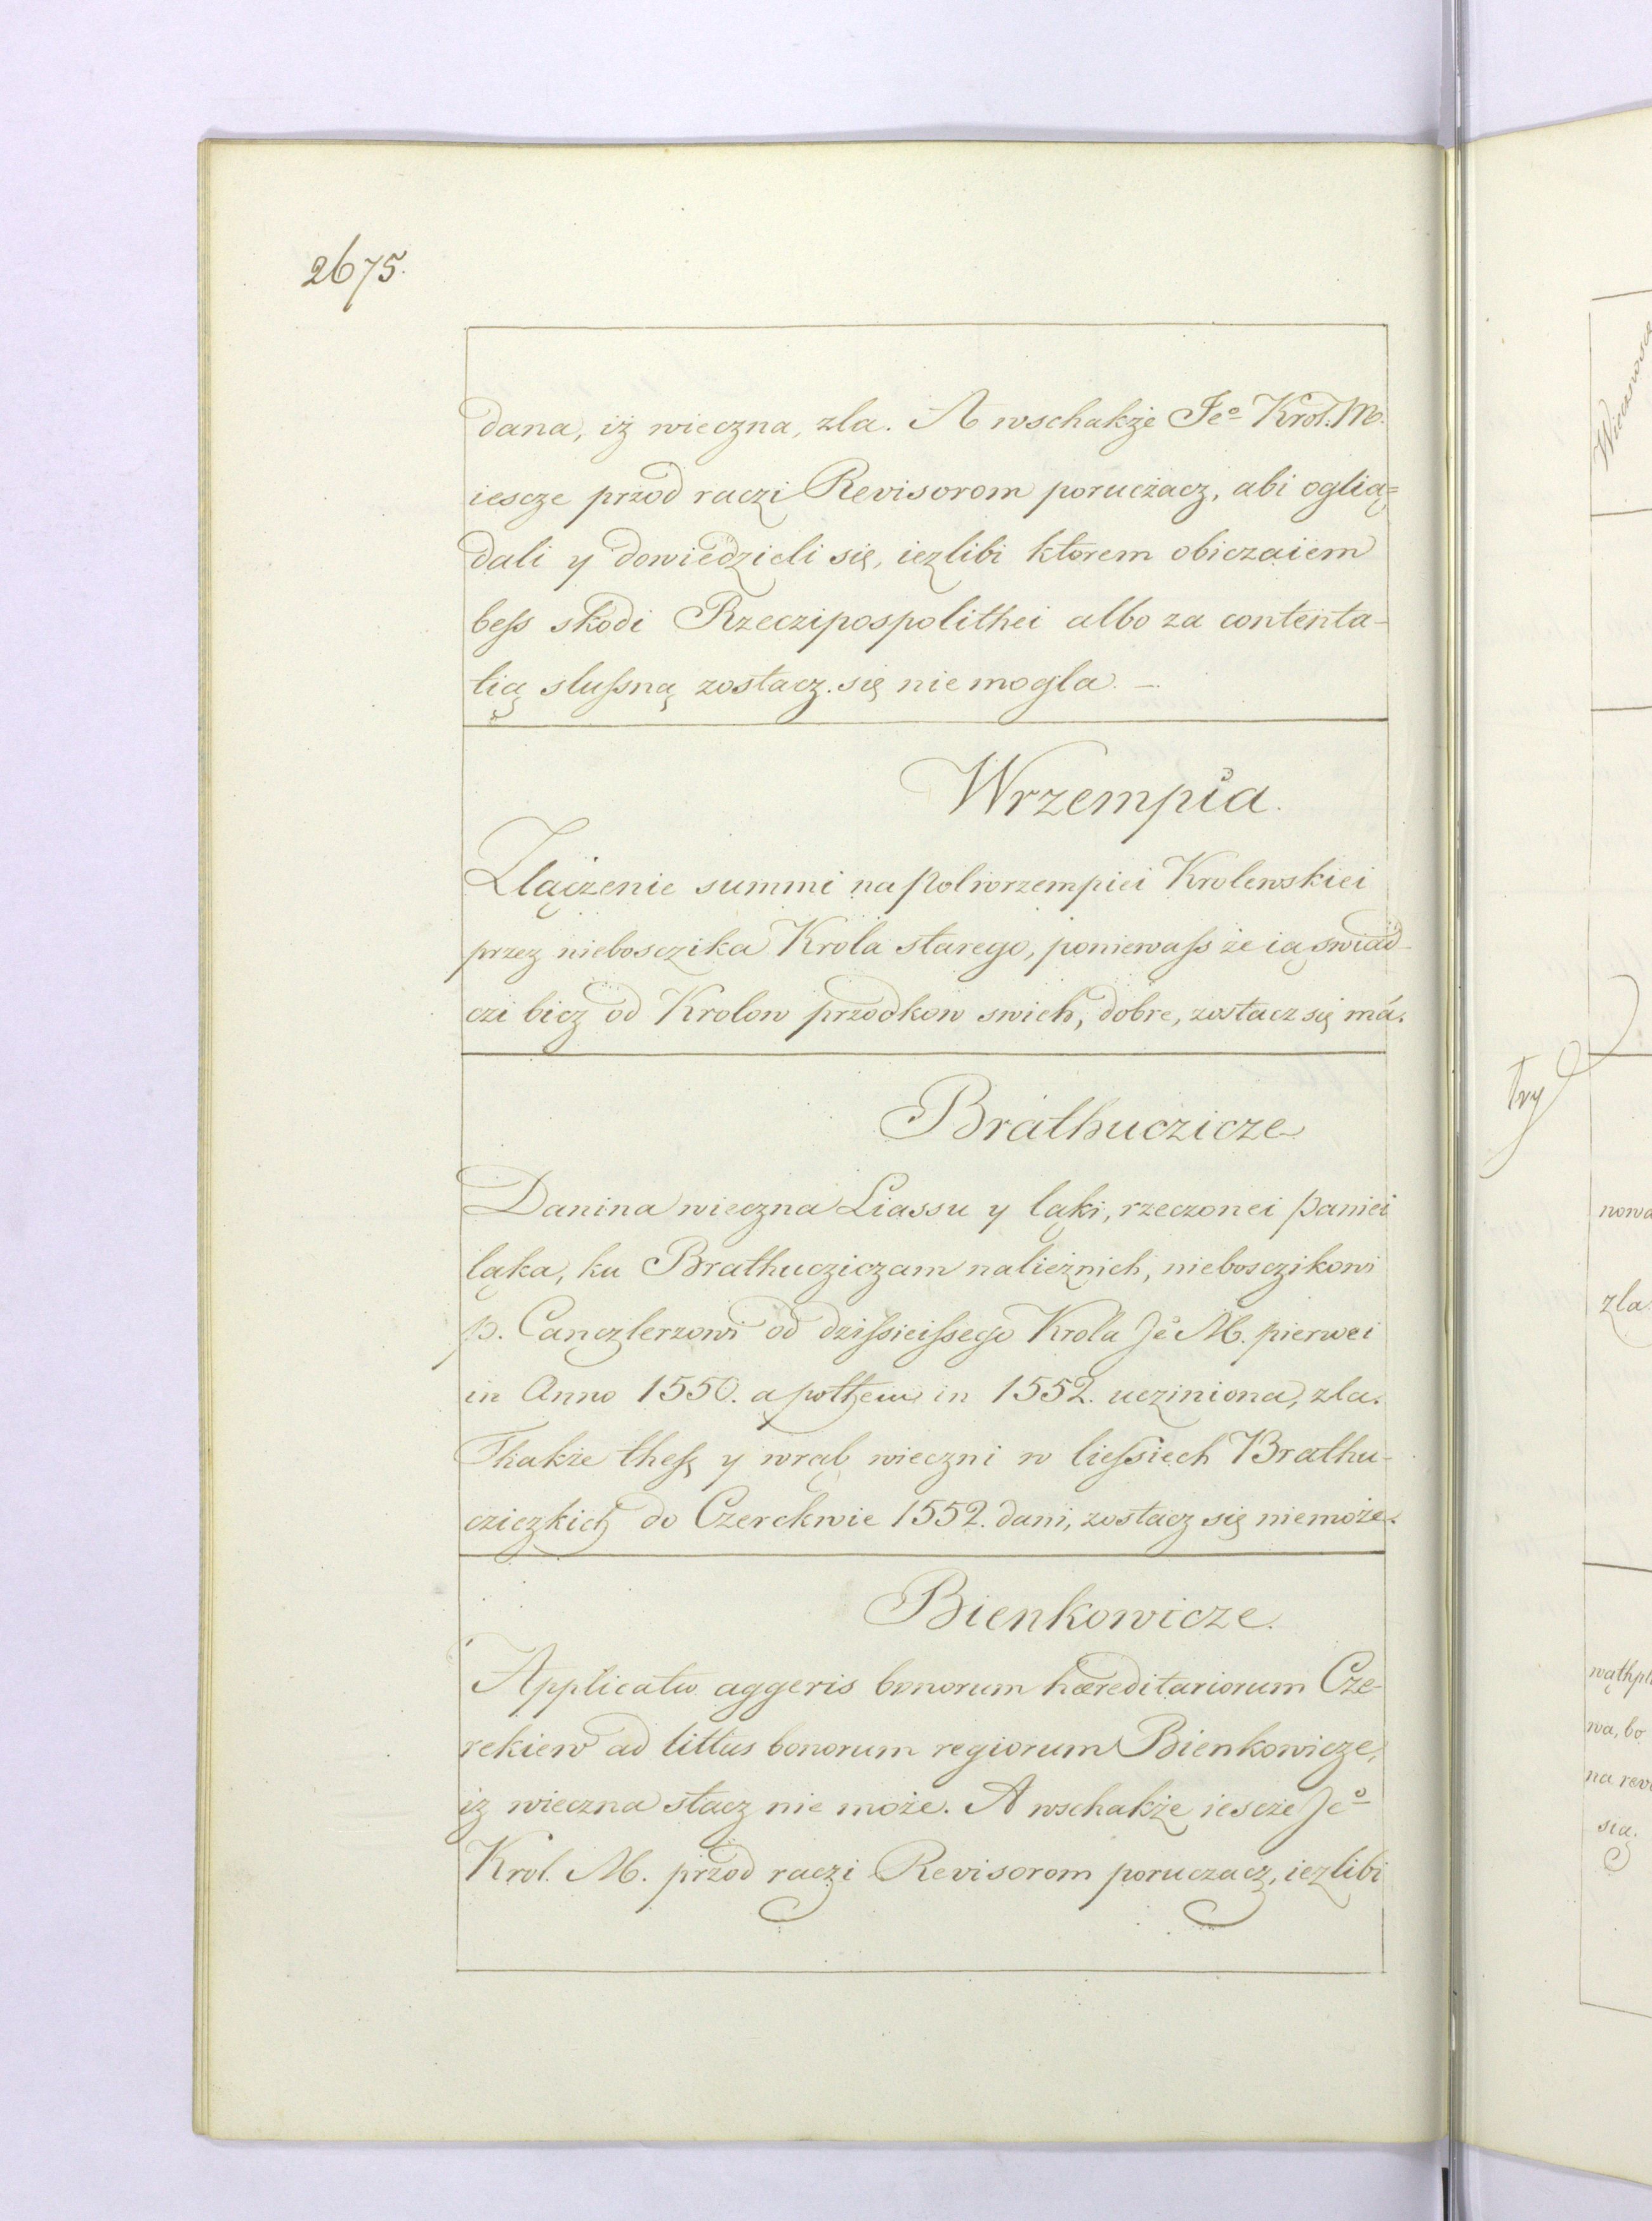 2675.
dana, iż wieczna, zla. A wschakże Je⁰ Krol. M.
iescze przod raczi Revisorom poruczacz, abi oglią=
dali y dowiedzieli się, iezlibi ktorem obiczaiem
bess skodi Rzeczipospolithei albo za contenta-
tią slussną zostacz się nie mogla. —
Wrzempia.
Złączenie summi na polwrzempiei Krolewskiei
przez nieboszczika Krola starego, poniewass że ią swiad-
czi bicz od Krolow przodkow swich, dobre, zostacz się má.
Brathuczicze
Danina wieczna Liassu y ląki, rzeczonei paniei
ląka, ku Brathucziczam należnich, nieboszczikowi
p. Canczlerzowi od dzissieissego Krola Je⁰ M. pierwei
in Anno 1550. a pothem in 1552. ucziniona, zla.
Thakże thesz y wrąb wieczni w liessiech Brathu-
cziczkich do Czerckwie 1552. dani, zostacz się niemoże.
Bienkowicze.
Applicatio aggeris bonorum hæreditariorum Cze-
rekiew ad littus bonorum regiorum Bienkowicze,
iz wieczna stacz nie może. A wschakże iescze Je⁰
Krol. M. przod raczi Revisorom poruczacz, iezlibi
try
nowa
zla
wa, bo
sia.